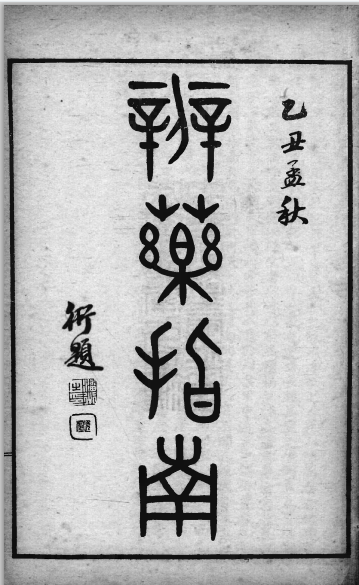 乙丑孟秋
辨藥指南
衍題